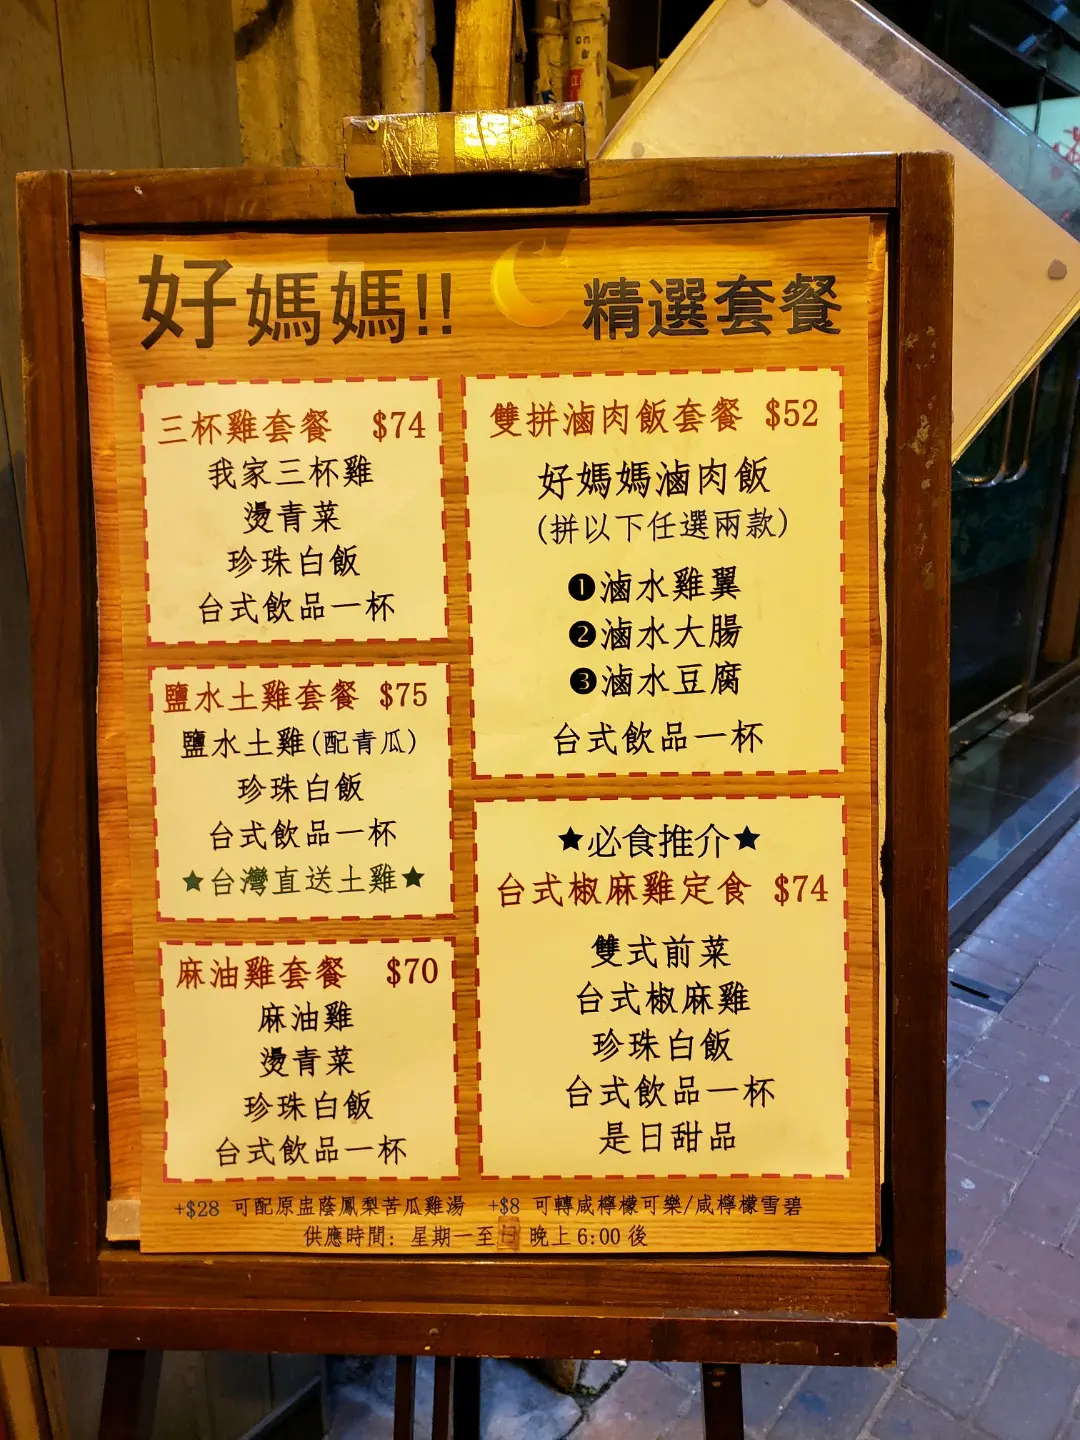 好媽媽!! 精選套餐
三杯雞套餐 $74
我家三杯雞
燙青菜
珍珠白飯
台式飲品一杯
鹽水土雞套餐 $75
鹽水土雞(配青瓜)
珍珠白飯
台式飲品一杯
★台灣直送土雞★
麻油雞套餐 $70
麻油雞
燙青菜
珍珠白飯
台式飲品一杯
雙拼滷肉飯套餐 $52
好媽媽滷肉飯
(拼以下任選兩款)
❶滷水雞翼
❷滷水大腸
❸滷水豆腐
台式飲品一杯
★必食推介★
台式椒麻雞定食 $74
雙式前菜
台式椒麻雞
珍珠白飯
台式飲品一杯
是日甜品
+$28 可配原盅蔭鳳梨苦瓜雞湯 +$8 可轉咸檸檬可樂/咸檸檬雪碧
供應時間: 星期一至 晚上 6:00 後